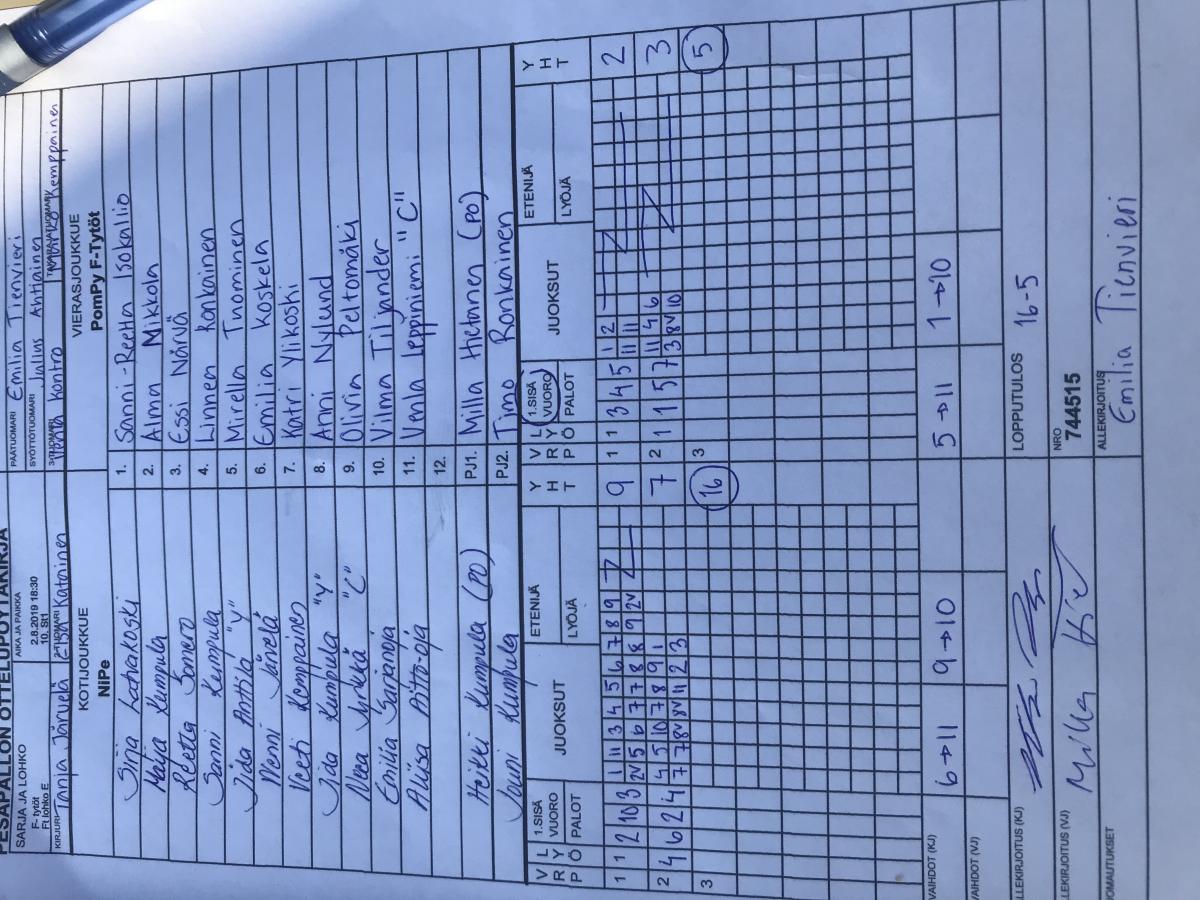 PESÄPALLON OTTELUPÖYTÄKIRJA
SARJA JA LOHKO
F- tytöt
Ft lohko E
AIKA JA PAIKKA
2.8.2019 18:30
10. St1
PÄÄTUOMARI Emilia Tienvieri
SYÖTTÖTUOMARI Julius Ahtiainen
KIRJURI Tanja Järvelä
2-TUOMARI Esa Katainen
3-TUOMARI Venla Kontro
TAKARAJATUOMARI Marko Kemppainen
KOTIJOUKKUE
NiPe
VIERASJOUKKUE
PomPy F-Tytöt
Sirja Latvakoski
1. Sanni-Reetta Isokallio
Maija Kumpula
2. Alma Mikkola
Reetta Somero
3. Essi Närvä
Sanni Kumpula
4. Linnea Ronkainen
Iida Anttila "Y"
5. Mirella Tuominen
Menni Järvelä
6. Emilia Koskela
Veeti Kemppainen
7. Katri Ylikoski
Iida Kumpula "Y"
8. Anni Nylund
"C"
9. Olivia Peltomäki
Emilia Sarjanoja
10. Vilma Tiljander
Aliisa Aitto-oja
11. Venla Leppiniemi "C"
12.
Heikki Kumpula (PO)
PJ1. Milla Hietanen (PO)
Jouni Kumpula
PJ2. Timo Ronkainen
V R P L Y Ö 1.SISÄ VUORO PALOT JUOKSUT ETENIJÄ LYÖJÄ Y H T
V R P L Y Ö 1.SISÄ VUORO PALOT JUOKSUT ETENIJÄ LYÖJÄ Y H T
1 1 2 10 3 1 11 3 4 5 6 7 8 9 9
2V 5 6 7 7 8 8 9 2V
1 1 3 4 5 1 2 2
11 11
2 4 6 2 4 4 5 10 7 8 9 1 7
7 7 8V 8V 11 2 3
2 1 1 5 7 11 4 6 3
3 8V 10
3 16
3 5
VAIHDOT (KJ) 6→11 9→10 5→11 1→10
VAIHDOT (VJ)
ALLEKIRJOITUS (KJ)
LOPPUTULOS 16-5
ALLEKIRJOITUS (VJ) Milla
NRO
744515
HUOMAUTUKSET
ALLEKIRJOITUS
Emilia Tienvieri